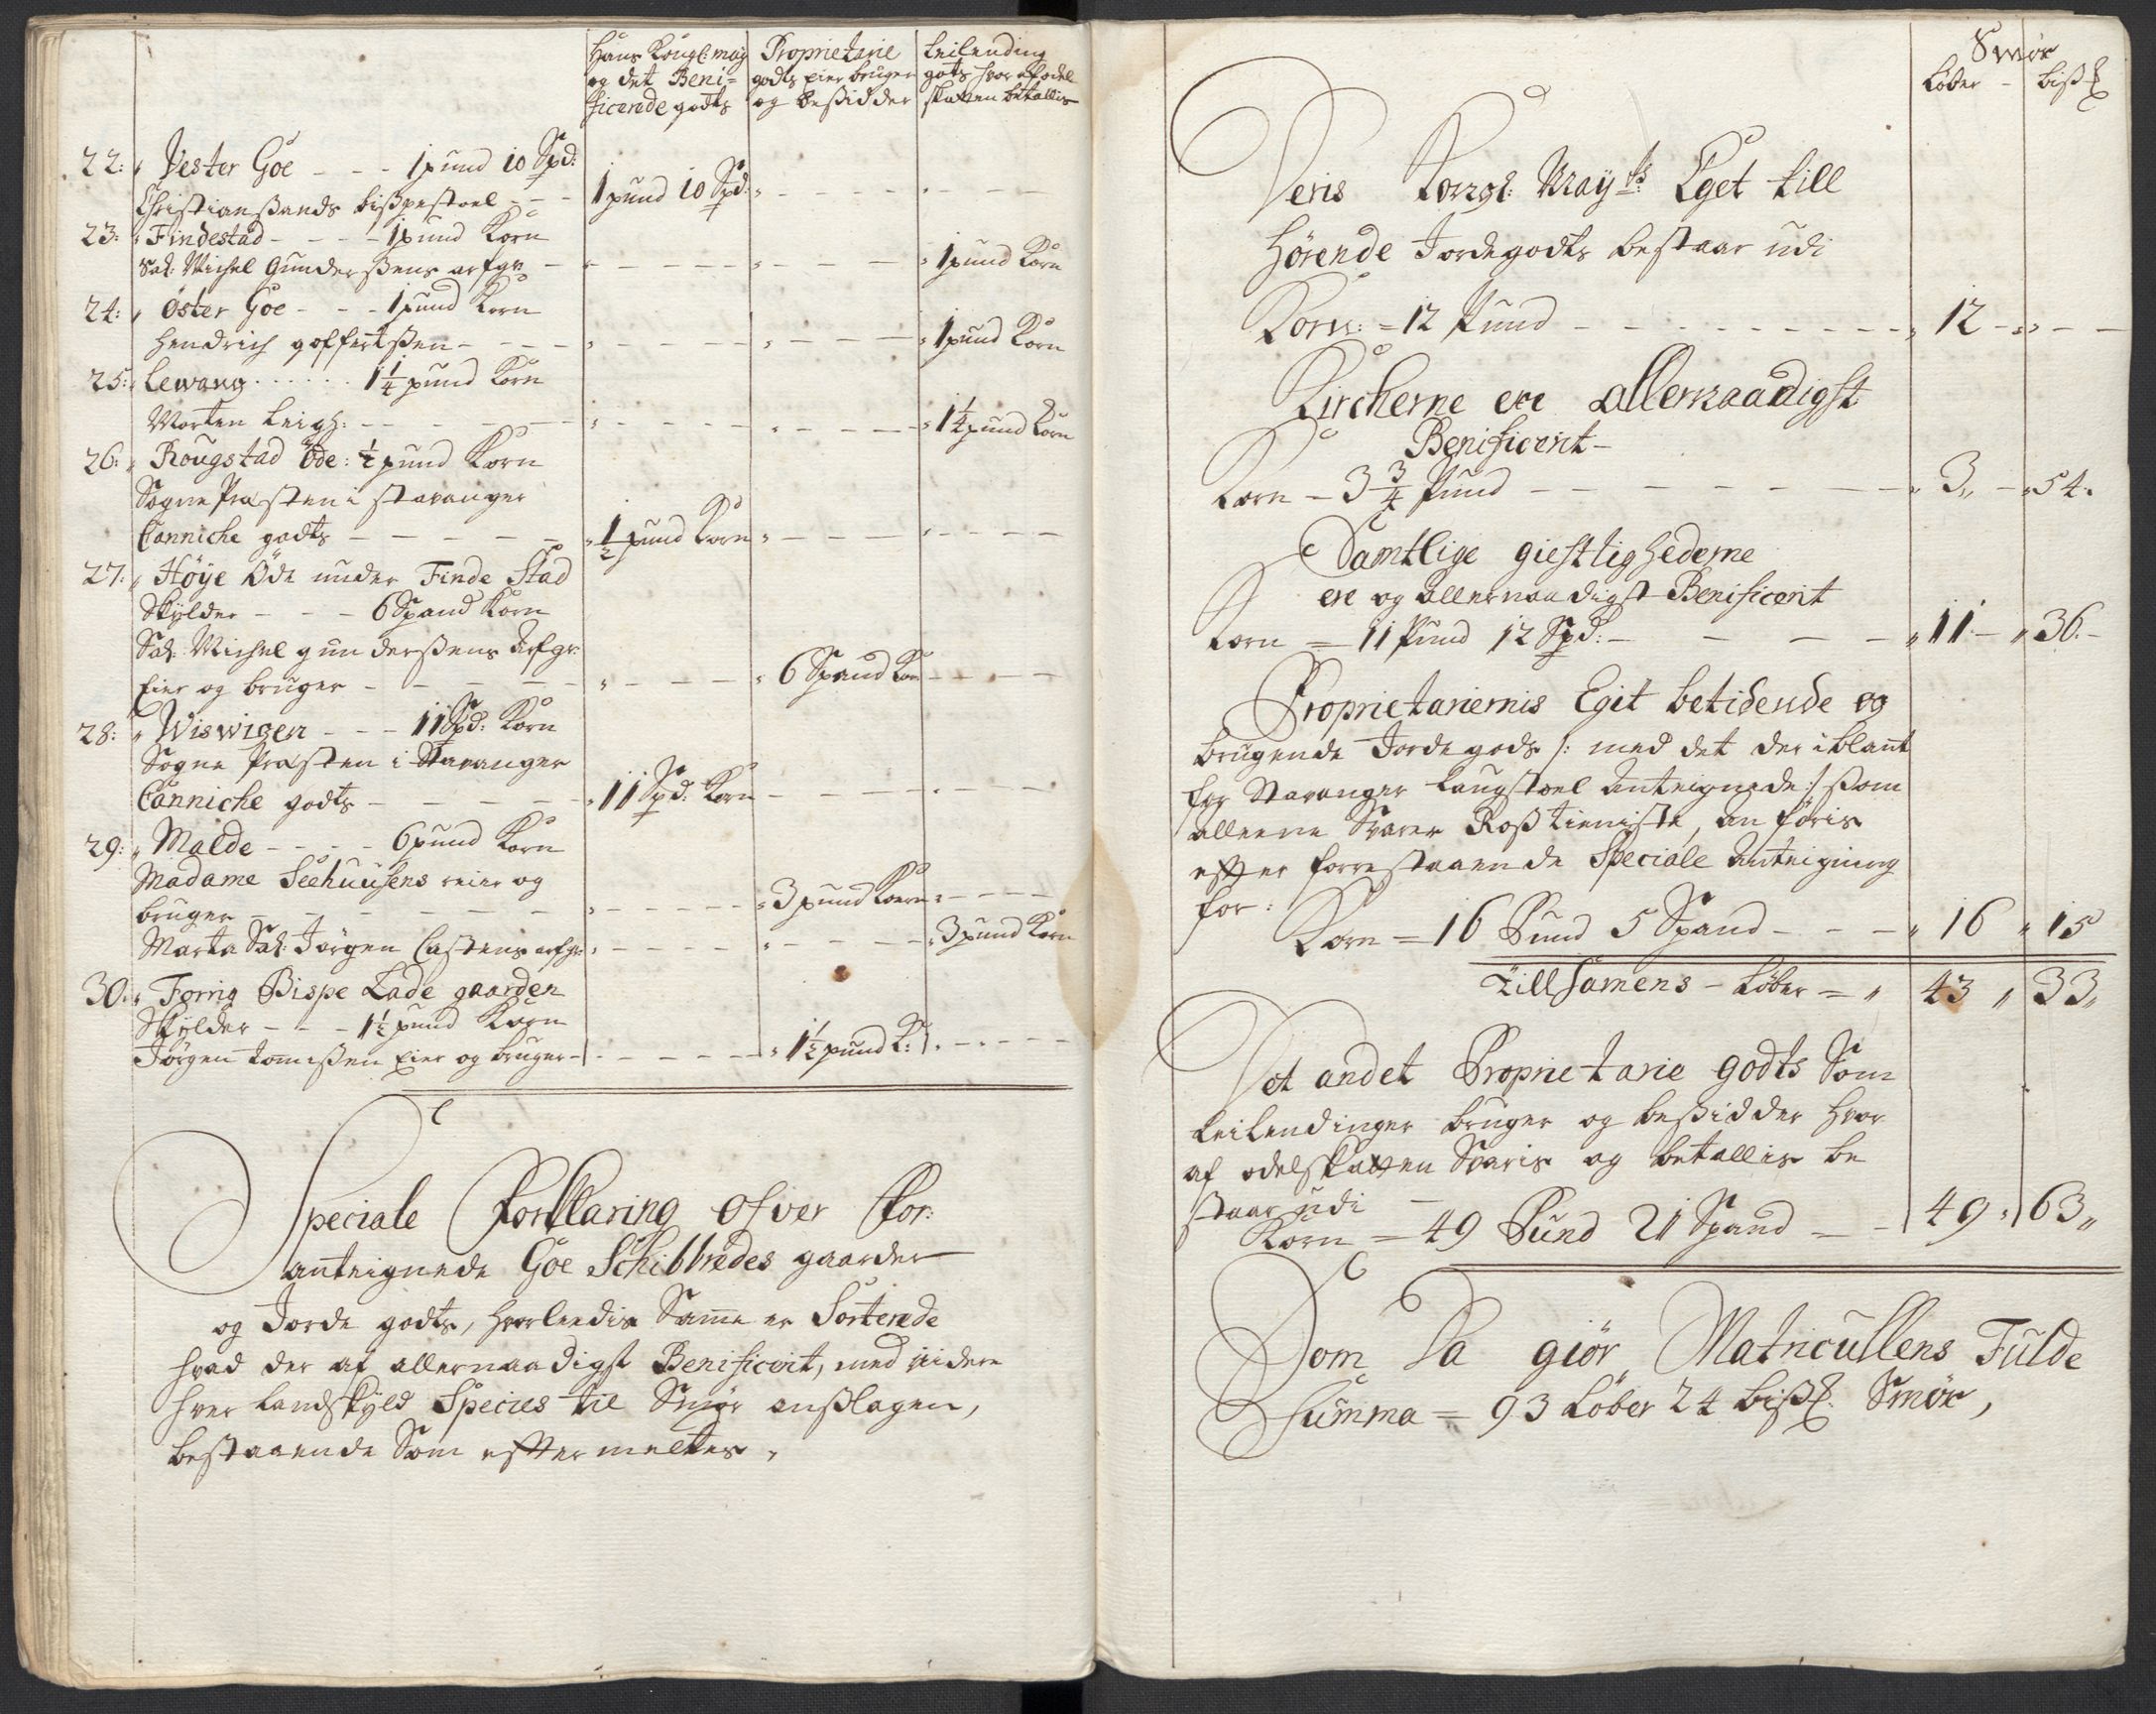 Hans Kongl: may
og det Beni-
ficerede godts
Proprietarie
godts eier bruger
og besidder
Leilending
gots hvor af odel
skatten betallis
22: Vester Goe - - - 1 pund 10 Spd:
Christiansands bispestoel - - - 1 pund 10 Spd:
23: Findestad - - - - 1 pund Korn
Sal: Michel Gundersens arfgr - 1 pund Korn
24: Öster Goe - - - 1 pund Korn
Hendrich goffertsen - - - - 1 pund Korn
25: Lewang . . . . . . 1 1/4 pund Korn
Morten Leigh: - - - 1 1/4 pund Korn
26: Rougstad Öde: 1/2 pund Korn
Sogne Præsten i stavanger
Canniche godts - - - - 1/2 pund Korn
27: Höye Öde under Finde Stad
Skylder - - - 6 Spand Korn
Sal: Michel gundersens Arfgr:
Eier og bruger - - - - 6 Spand Korn
28: Wiswigen - - - 11 Spd: Korn
Sogne Præsten i Stavanger
Canniche godts - - - - 11 Spd: Korn
29: Malde - - - - 6 pund Korn
Madame Seehuusens eier og
bruger - - - - 3 pund Korn
Marta Sal: Jörgen Castens arfgr: 3 pund Korn
30: Forrig Bispe Lade gaarden
Skylder - - - 1 1/2 pund Korn
Jörgen Tomesen Eier og bruger - 1 1/2 pund K:
Speciale Forklaring ofver For:
anteignede Goe Schibbredes gaarder
og Jorde godts, hvorleedis Samme er Sorterede
hvad der af allernaadigst Benificerit, med videre
hver Landskyld Species til Smör anslagen,
bestaaende Som efftermeltes.
Smör
Löber - bißl
Deris Kongl: Mayts: Eget till
hörende Jordegodts bestaar udi
Korn: = 12 Pund - - - - 12 - - -
Kircherne ere allernaadigst
Benificerit -
Korn - 3 3/4 Pund - - - - 3 - 54.
Samtlige giestlighederne
ere og allernaadigst Benificerit
Korn = 11 Pund 12 Spd: - - - 11 - 36. -
Proprietariernis Egit betidende og
brugende Jordegods /: med det der iblant
for Stavanger Laugstoel Anteignede :/ som
alleene Svarer Roßtieniste, an föris
effter forrestaaende Speciale Anteigning
for:
Korn = 16 Pund 5 Spand - - - 16 15
Tillsamens - Löber = 43 33
Det andet Proprietarie godts Som
Leilendinger bruger og besidder hvor
af odelskatten Svaris og betallis be
staar udi -
Korn = 49 Pund 21 Spand - - 49 63
Som Da giör Matricullens Fulde
Summa = 93 Löber 24 bißl: Smör,